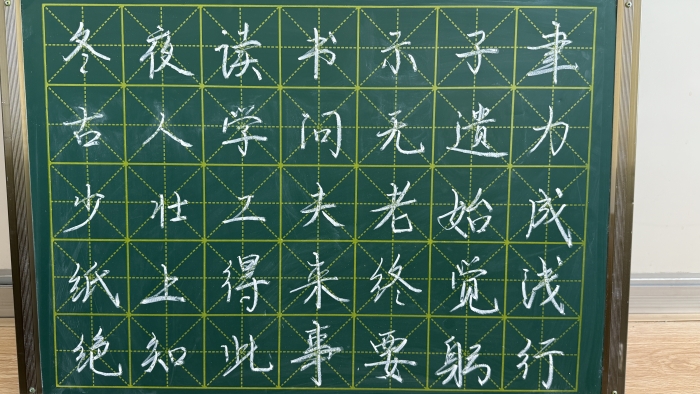 冬夜读书示子聿
古人学问无遗力
少壮工夫老始成
纸上得来终觉浅
绝知此事要躬行